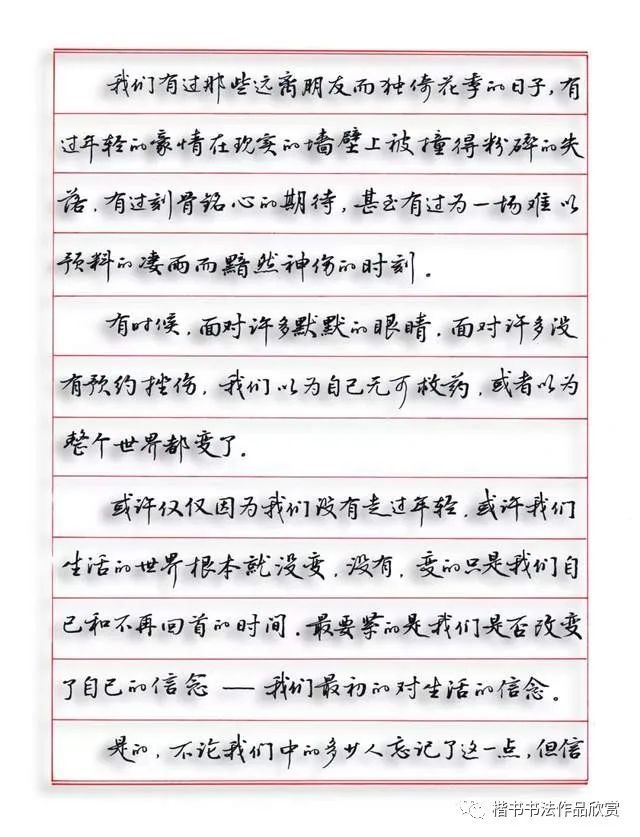 我们有过那些远离朋友而独倚花季的日子，有
过年轻的豪情在现实的墙壁上被撞得粉碎的失
落，有过刻骨铭心的期待，甚至有过为一场难以
预料的凄雨而黯然神伤的时刻。
有时候，面对许多默默的眼睛，面对许多没
有预约挫伤，我们以为自己无可救药，或者以为
整个世界都变了。
或许仅仅因为我们没有走过年轻，或许我们
生活的世界根本就没变，没有，变的只是我们自
己和不再回首的时间。最要紧的是我们是否改变
了自己的信念——我们最初的对生活的信念。
是的，不论我们中的多少人忘记了这一点，但信
楷书书法作品欣赏